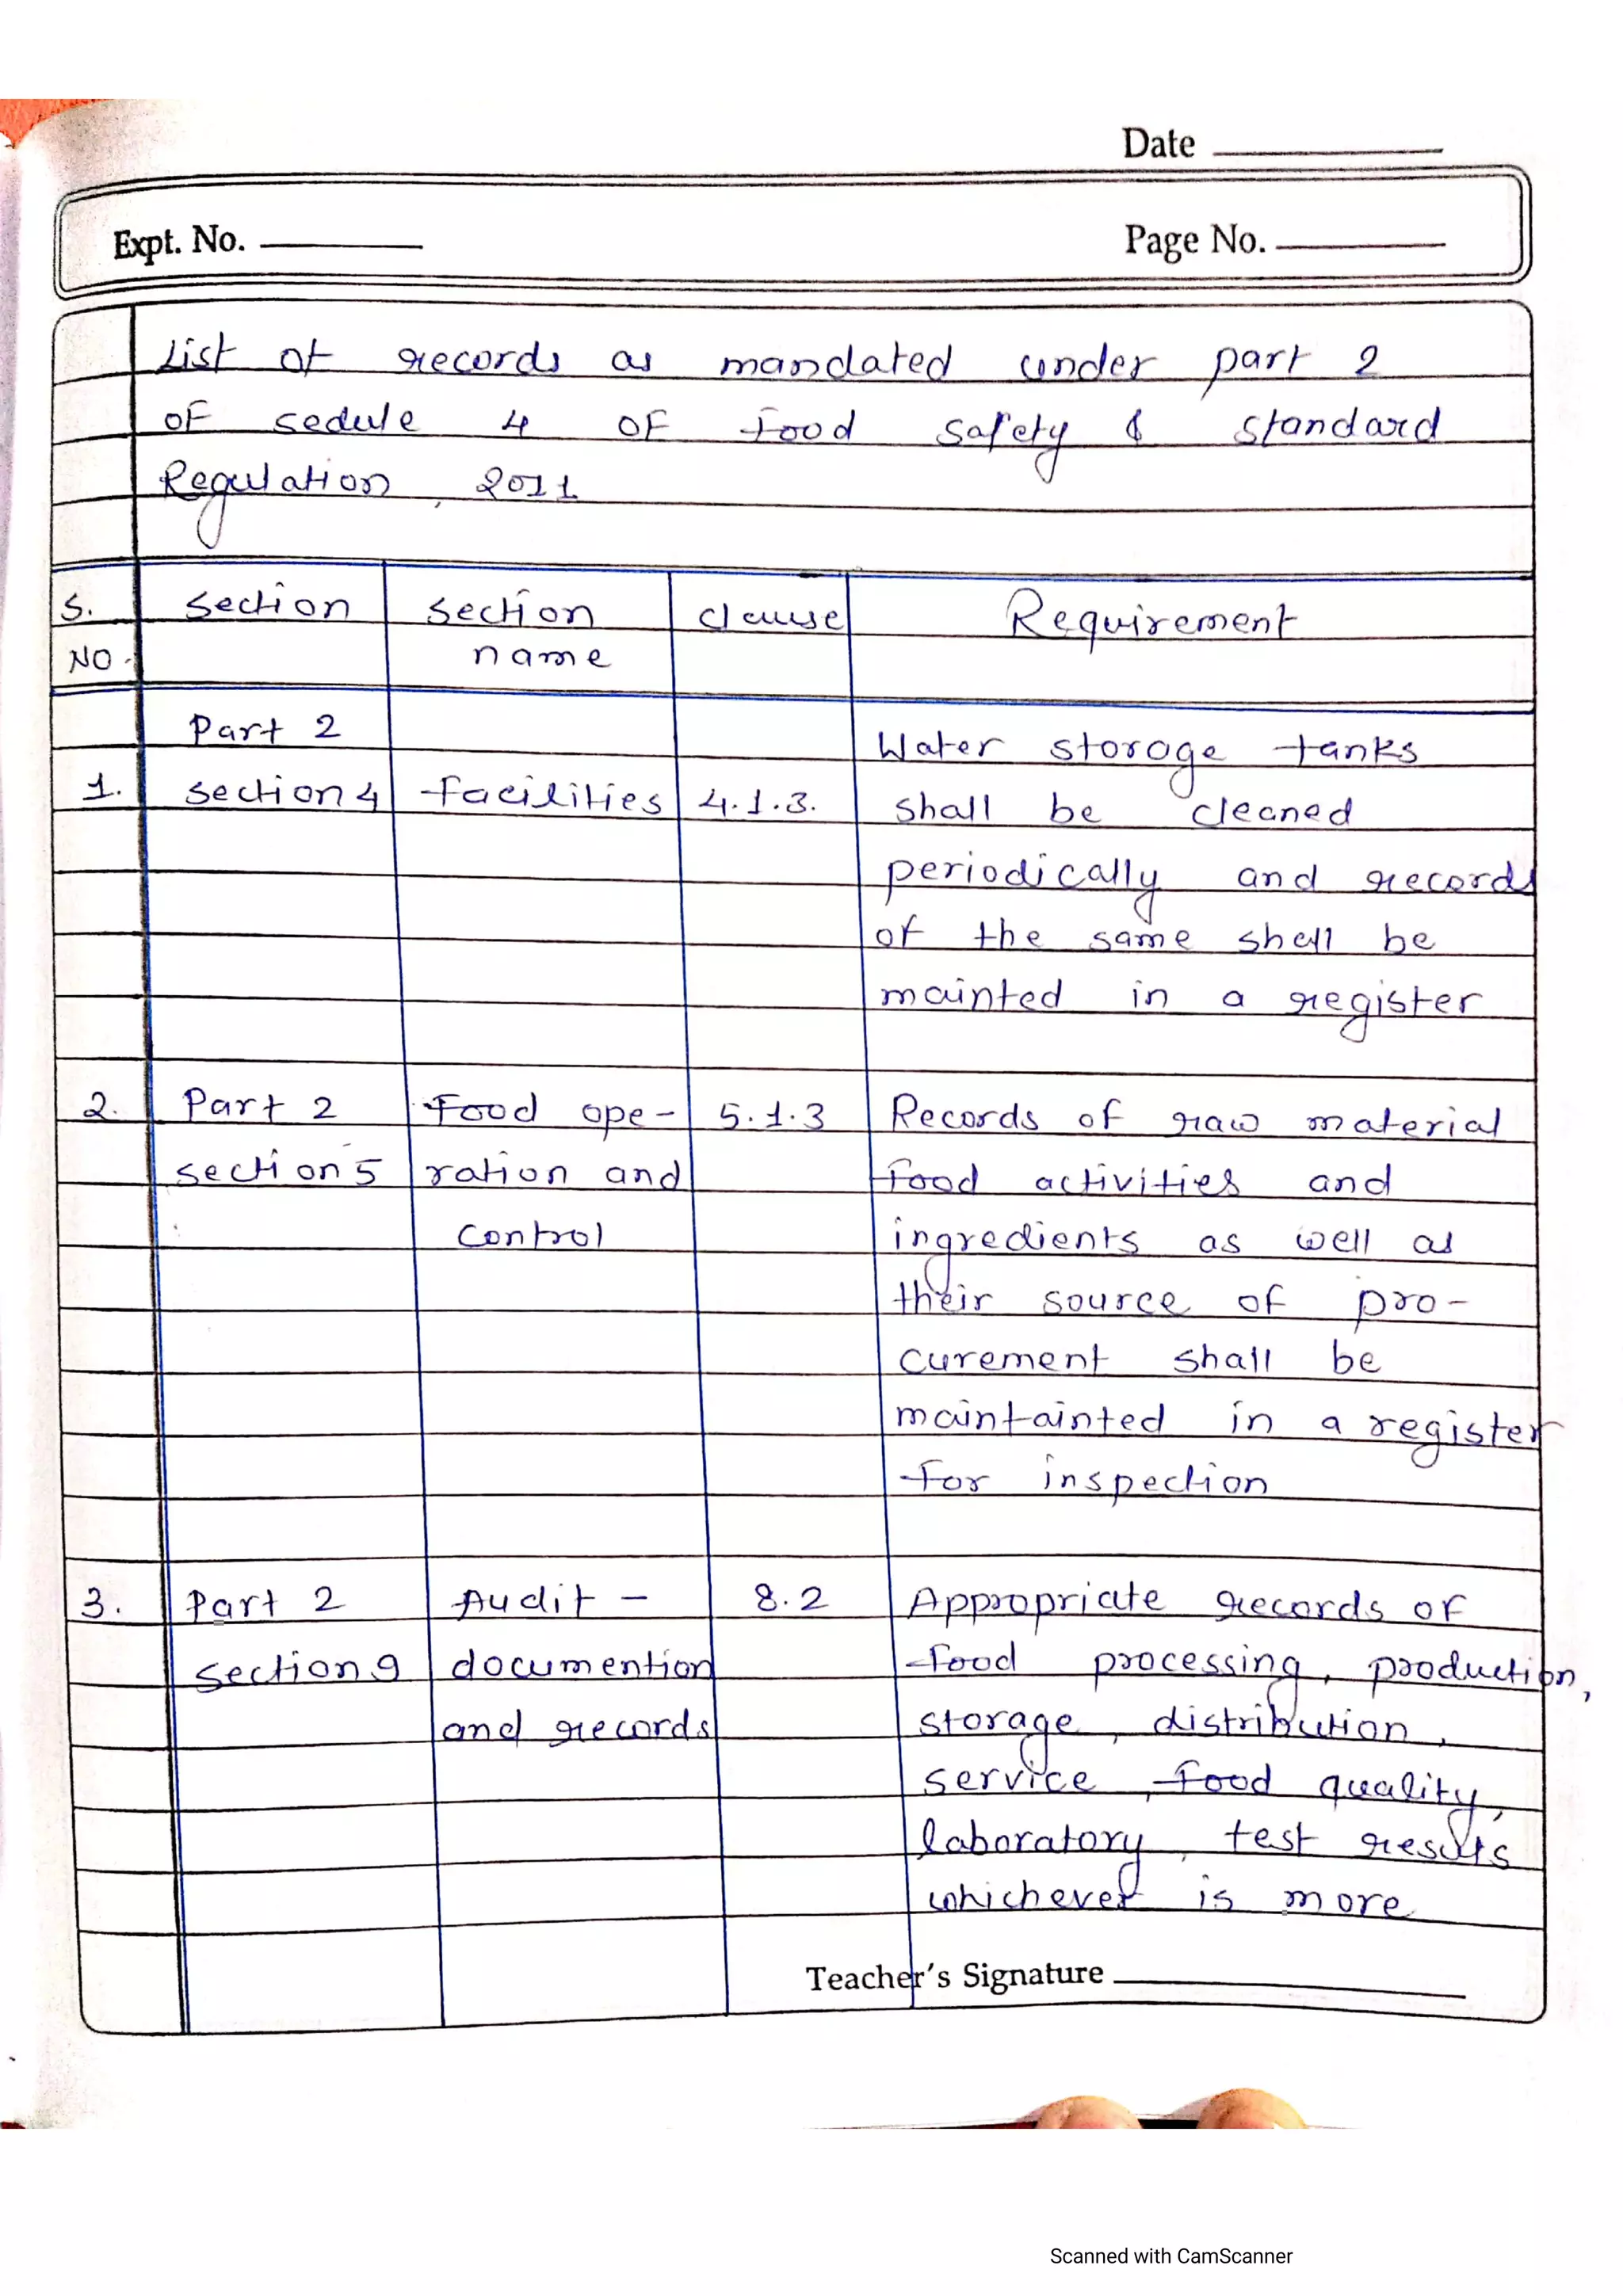 Date
Expt. No.
Page No.
List of records as mandated under part 2
of sedule 4 of food safety & standard
Regulation, 2011
S. NO. section section name clause Requirement
Part 2
Water storage tanks
1. section 4 facilities 4.1.3. shall be cleaned
periodically and records
of the same shall be
mainted in a register
2. Part 2 Food ope- 5.1.3 Records of raw material
section 5 ration and food activities and
control ingredients as well as
their source of pro-
curement shall be
maintainted in a register
for inspection
3. Part 2 Audit - 8.2 Appropriate records of
section 9 documention food processing, production,
and records storage, distribution,
service, food quality,
laboratory, test results
whichever is more
Teacher's Signature
Scanned with CamScanner